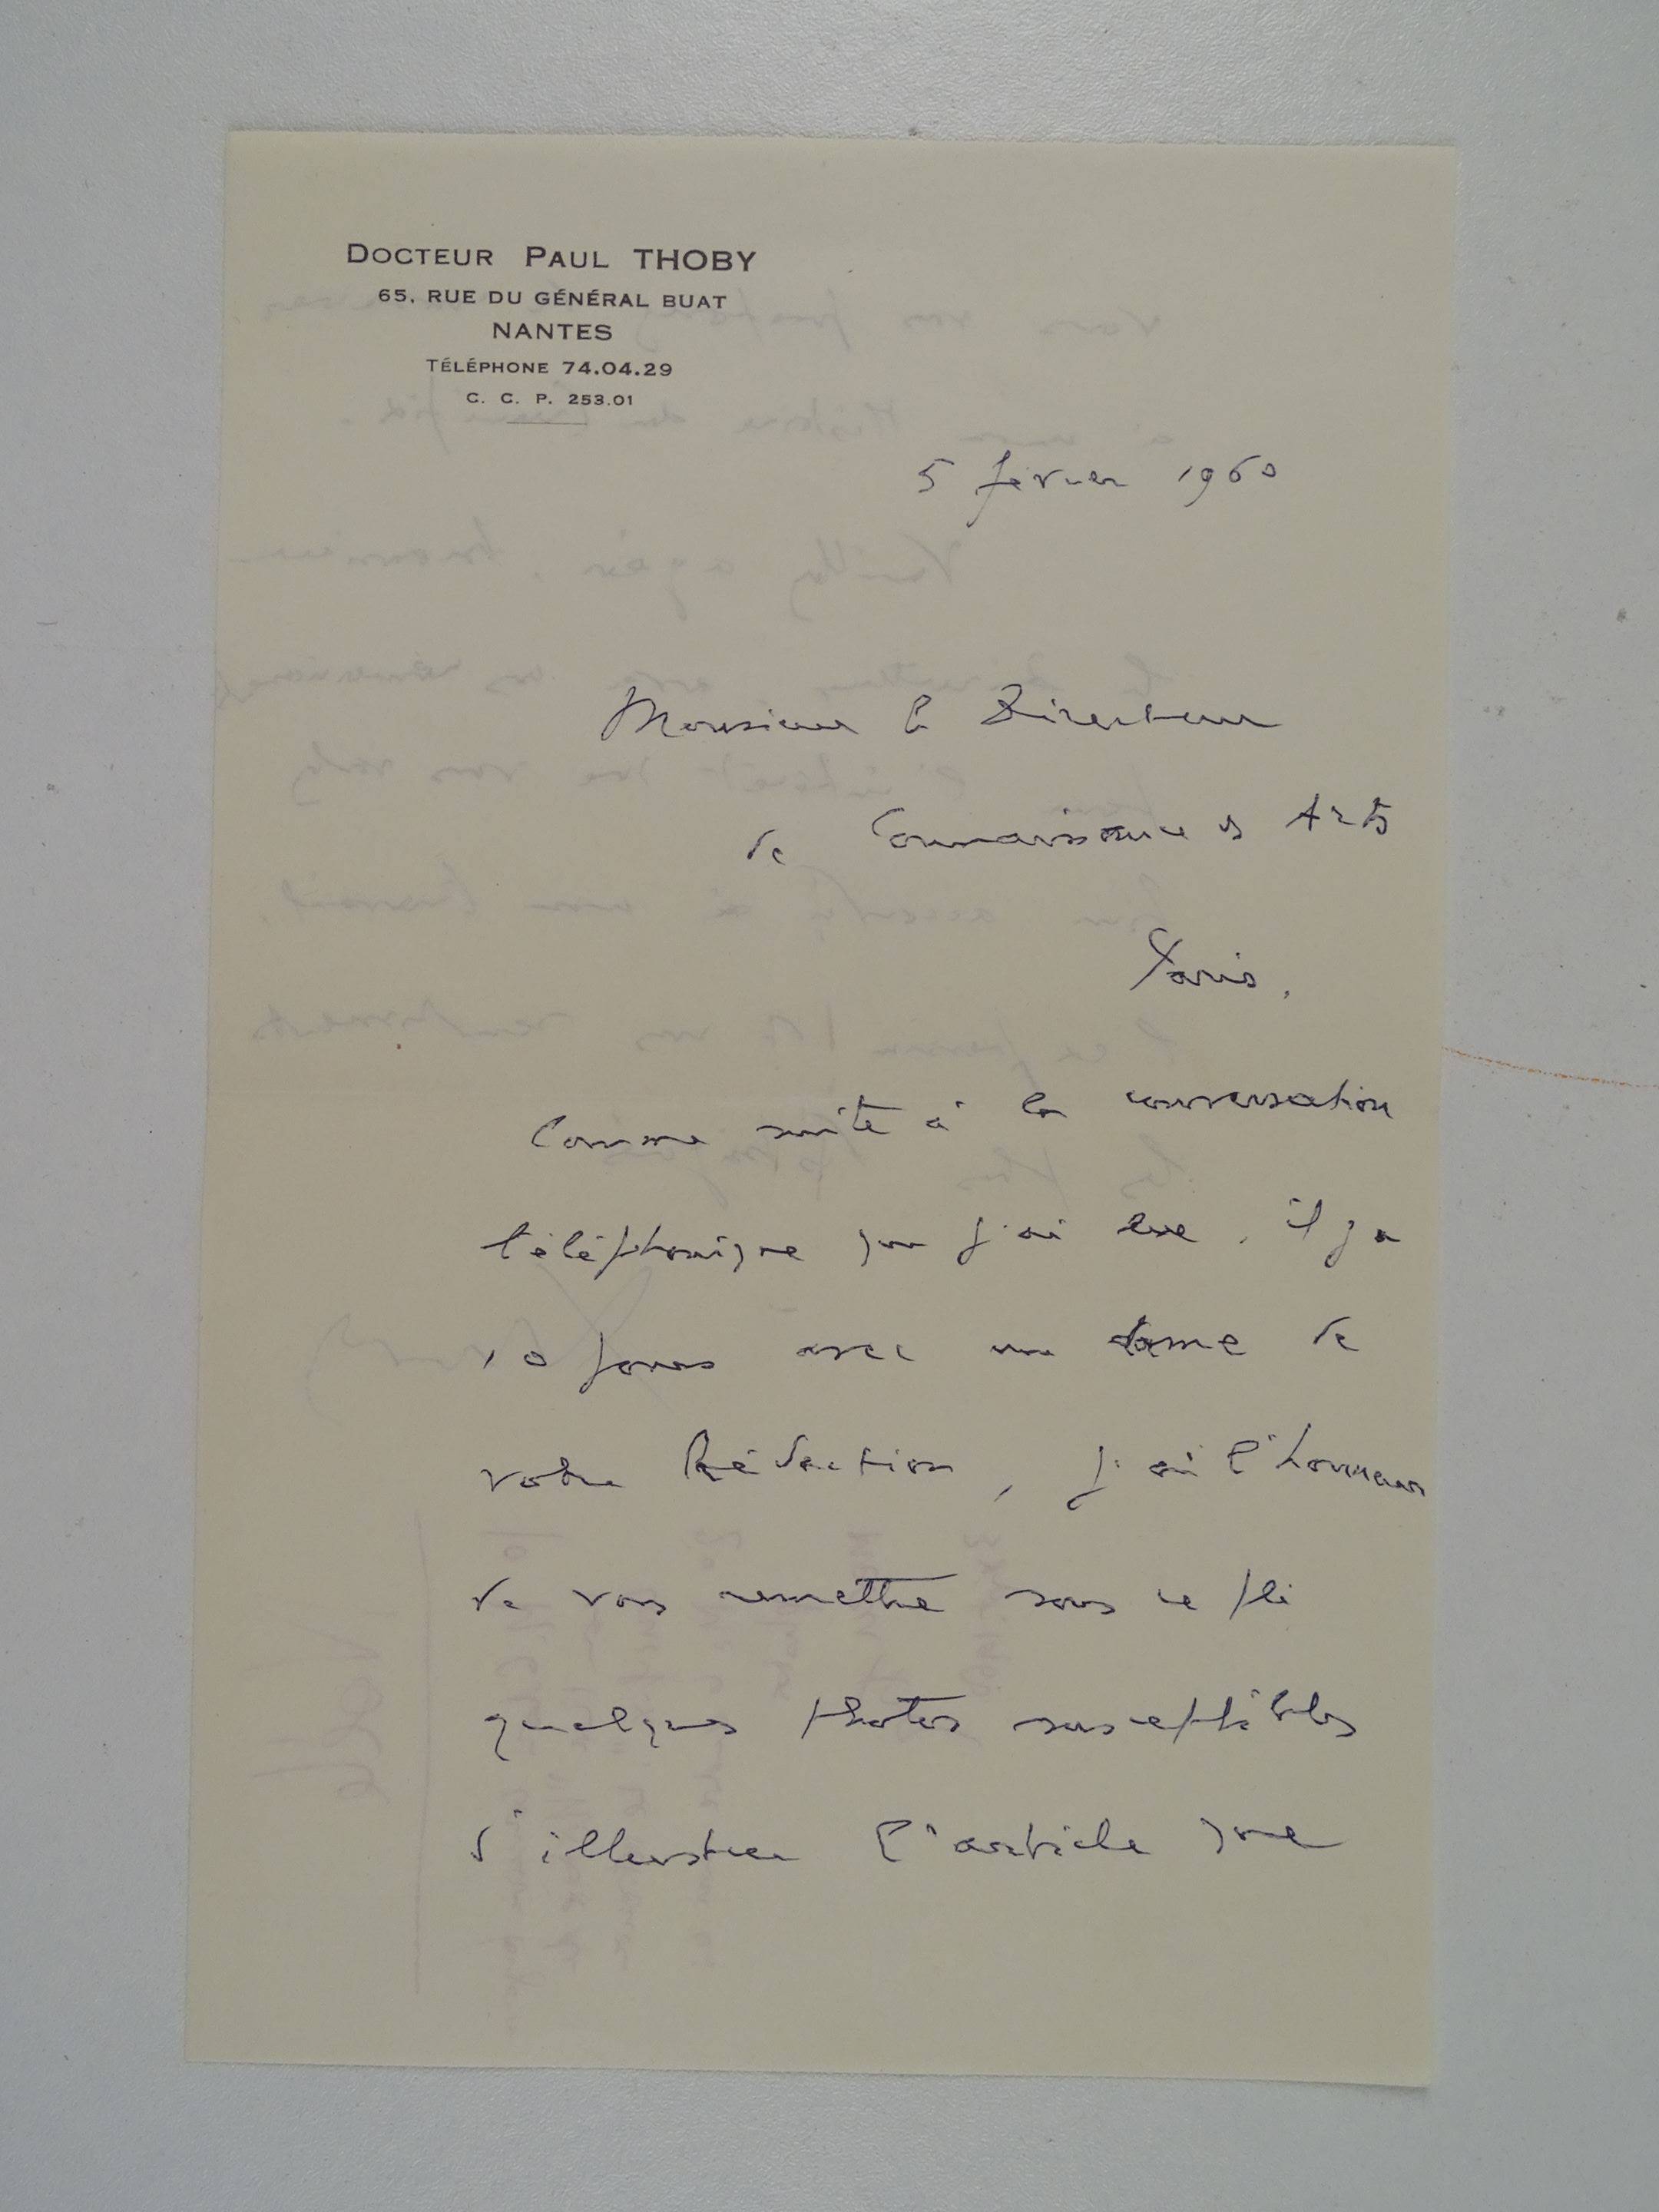 DOCTEUR PAUL THOBY
65, RUE DU GÉNÉRAL BUAT
NANTES
TÉLÉPHONE 74.04.29
C. C. P. 253.01
5 février 1960
Monsieur le Directeur
de Connaissance des Arts
Paris.
Comme suite à la conversation
téléphonique que j'ai eue, il y a
10 jours avec une dame de
votre Rédaction, j'ai l'honneur
de vous remettre sous ce pli
quelques photos susceptibles
d'illustrer l'article que